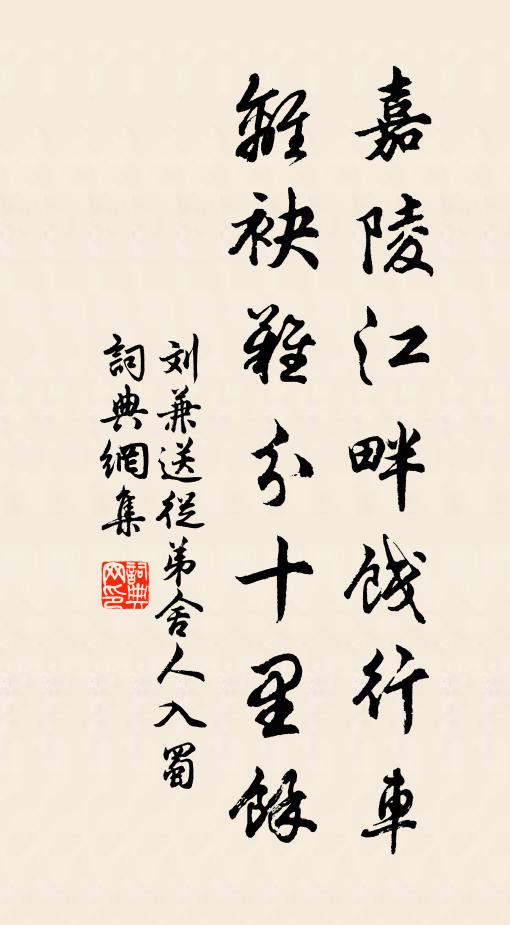 嘉陵江畔餞行車
離袂難分十里餘
刘兼送從弟舍人入蜀
詞典網集
詞典网印